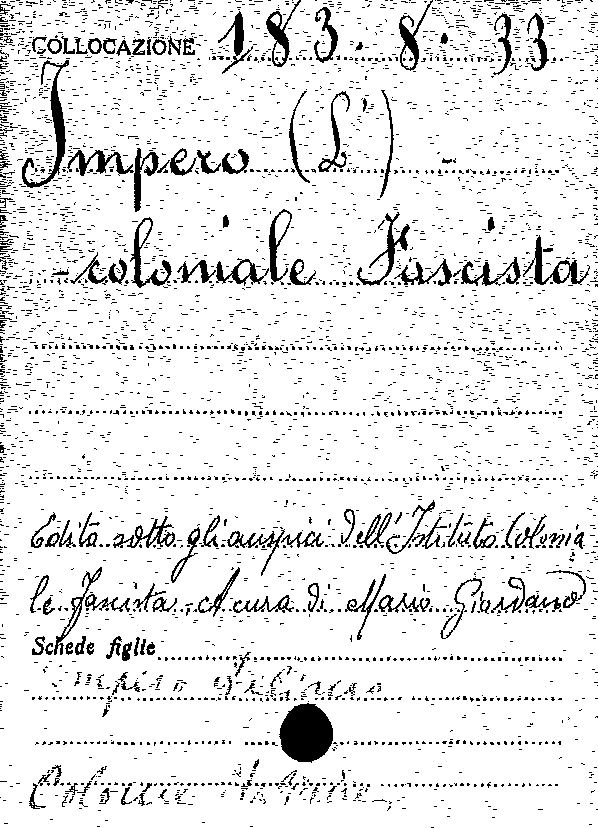 COLLOCAZIONE 183.8.33
Impero (L') -
- coloniale Fascista
Edito sotto gli auspici dell'Istituto Colonia
le Fascista. A cura di Mario Giordano
Schede figlie
Impero
Colonie